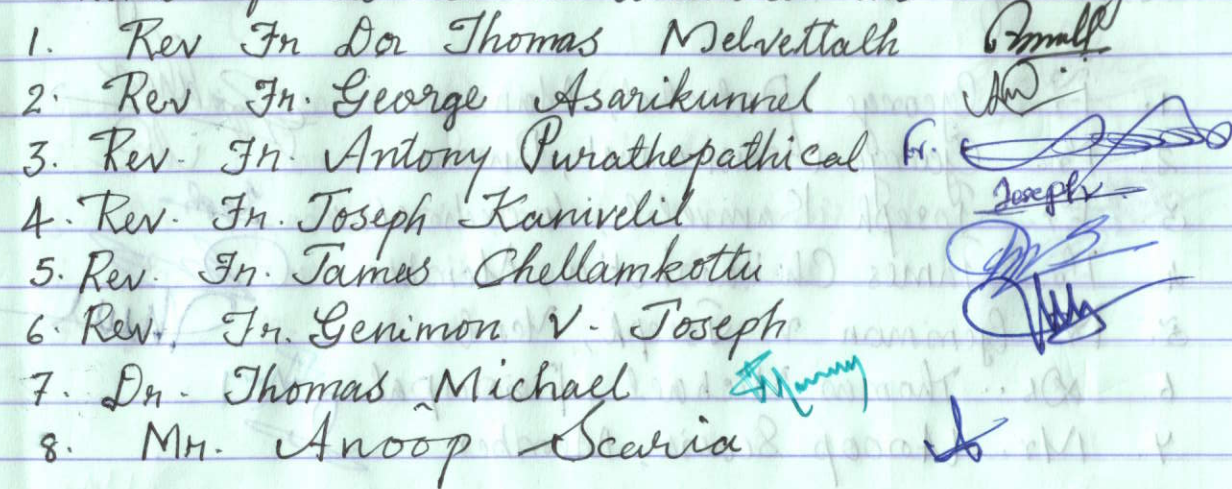 1. Rev Fr Dr Thomas Melvettath
2. Rev Fr. George Asarikunnel
3. Rev. Fr. Antony Purathepathical Fr.
4. Rev. Fr. Joseph Kanivelil Joseph
5. Rev. Fr. James Chellamkottu
6. Rev. Fr. Genimon V. Joseph
7. Dr. Thomas Michael
8. Mr. Anoop Scaria